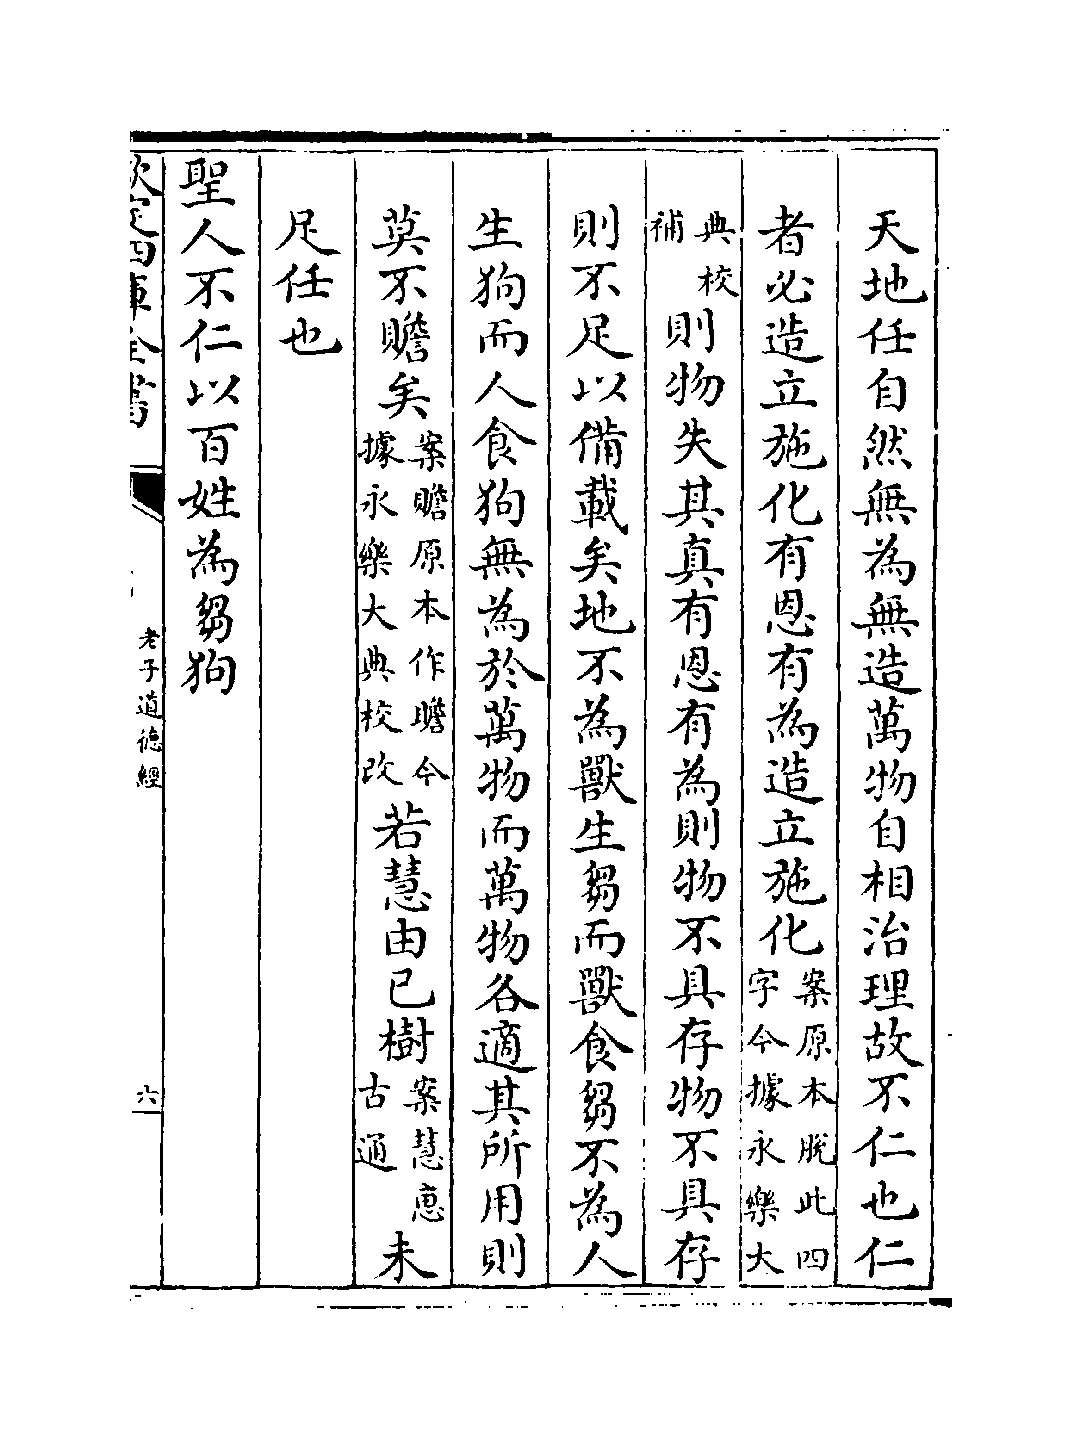 天地任自然無為無造萬物自相治理故不仁也仁
者必造立施化有恩有為造立施化案原本脫此四字今據永樂大
典校補則物失其真有恩有為則物不具存物不具存
則不足以備載矣地不為獸生芻而獸食芻不為人
生狗而人食狗無為於萬物而萬物各適其所用則
莫不贍矣案贍原本作瞻今據永樂大典校改若慧由已樹案慧惠古通未
足任也
聖人不仁以百姓為芻狗
欽定四庫全書
老子道德經
六